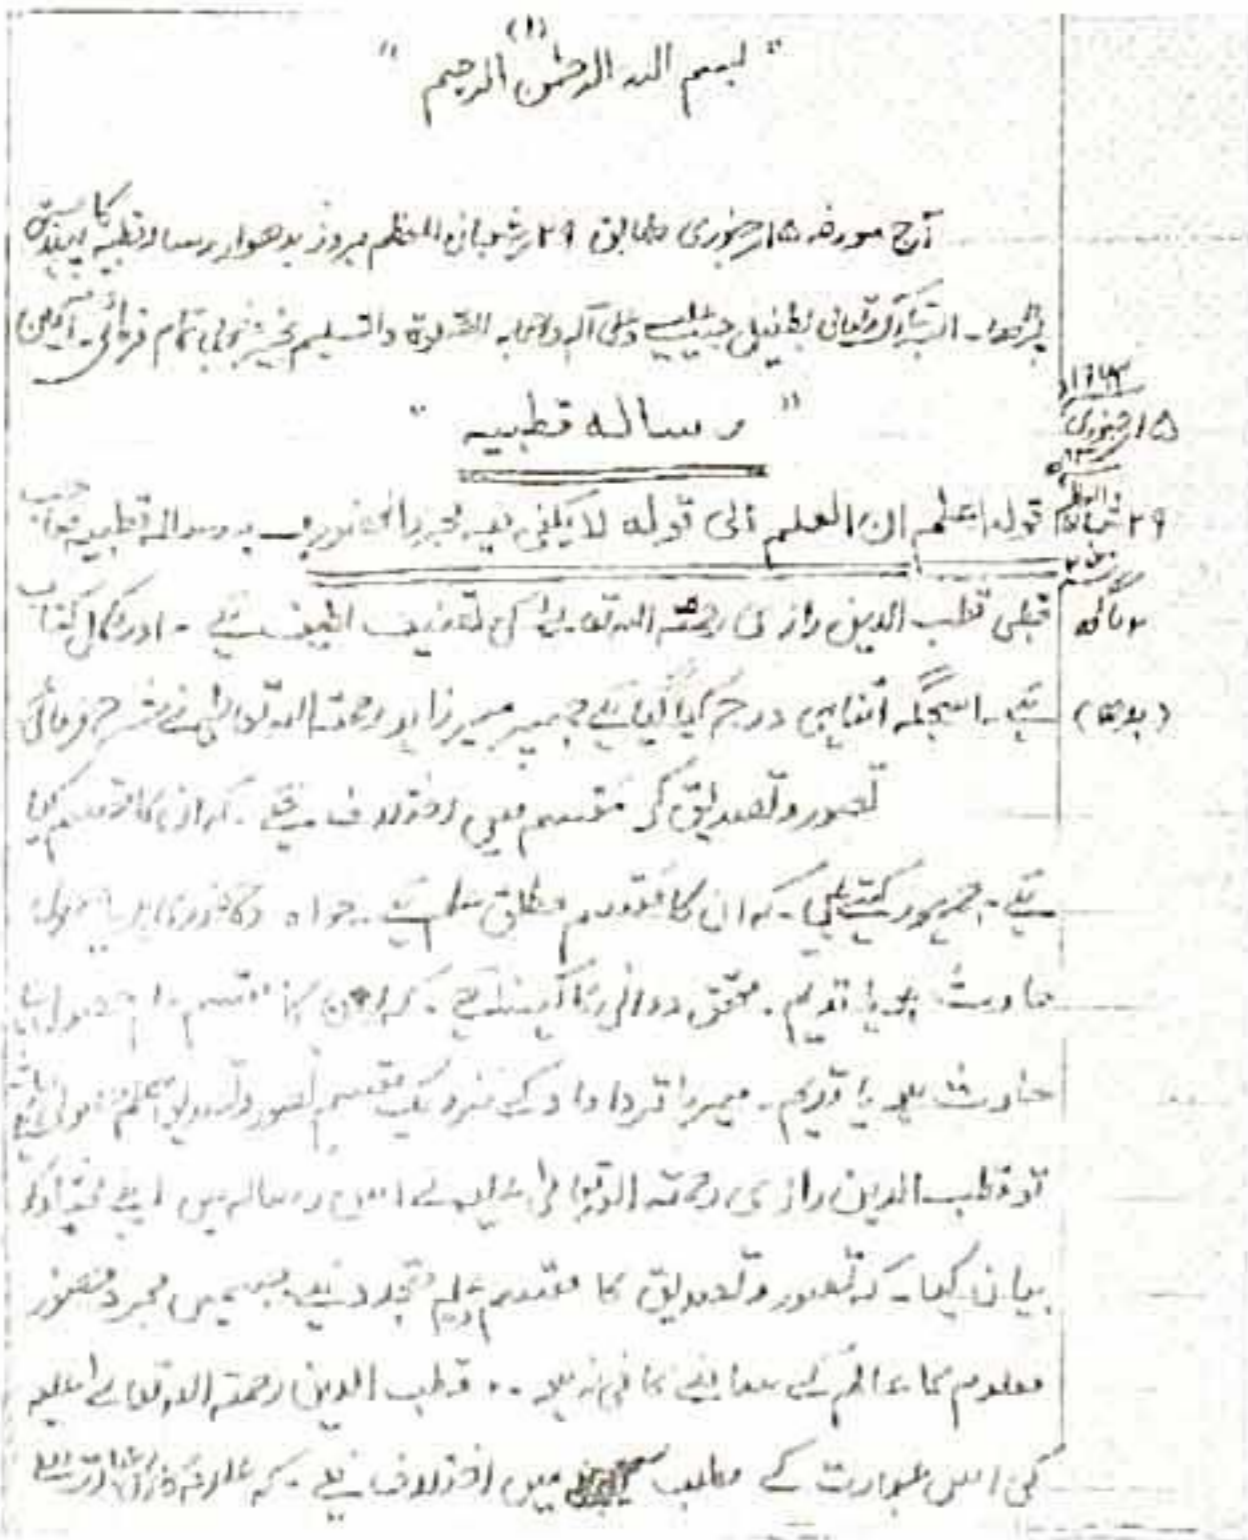 (۱)
" بسم اللہ الرحمٰن الرحیم "
آج مورخہ ۱۵ جنوری مطابق ۲۹ شعبان المعظم بروز بدھوار رسالہ قطبیہ کا سبق
پڑھا۔ اللہ تبارک وتعالیٰ بطفیل حبیبہ وعلی آلہ واصحابہ الصلوۃ والتسلیم بخیر وخوبی تمام فرمائے۔ آمین
" رسالہ قطبیہ "
۱۵ جنوری
۲۹ شعبان المعظم
(بدھ)
قولہ اعلم ان العلم الی قولہ لا یکفی فیہ مجرد الحضور۔ یہ رسالہ قطبیہ
قطبی قطب الدین رازی رحمتہ اللہ تعالیٰ کی تصنیف لطیف ہے۔ اور مکمل کتاب
ہے۔ اسجگہ اتنا ہی درج کیا گیا ہے جسپر میر زاہد رحمتہ اللہ تعالیٰ نے شرح فرمائی
تصور وتصدیق کے مقسم میں اختلاف ہے۔ کہ ان کا مقسم کیا
ہے۔ جمہور کہتے ہیں۔ کہ ان کا مقسم مطلق علم ہے۔ خواہ وہ حضوری ہو یا حصولی
حادث ہو یا قدیم۔ محقق دوانی کا کہنا ہے۔ کہ ان کا مقسم
حادث ہو یا قدیم۔ میر باقر داماد کے نزدیک مقسم تصور وتصدیق علم حصولی
تو قطب الدین رازی رحمتہ اللہ تعالیٰ علیہ نے اس رسالہ میں اپنے مختار کو
بیان کیا۔ کہ تصور وتصدیق کا مقسم علم متجدد ہے جسمیں مجرد حضور
معلوم کا عالم کے سامنے کافی نہ ہو۔ قطب الدین رحمتہ اللہ تعالیٰ علیہ
کی اس عبارت کے مطلب میں اختلاف ہے۔ کہ